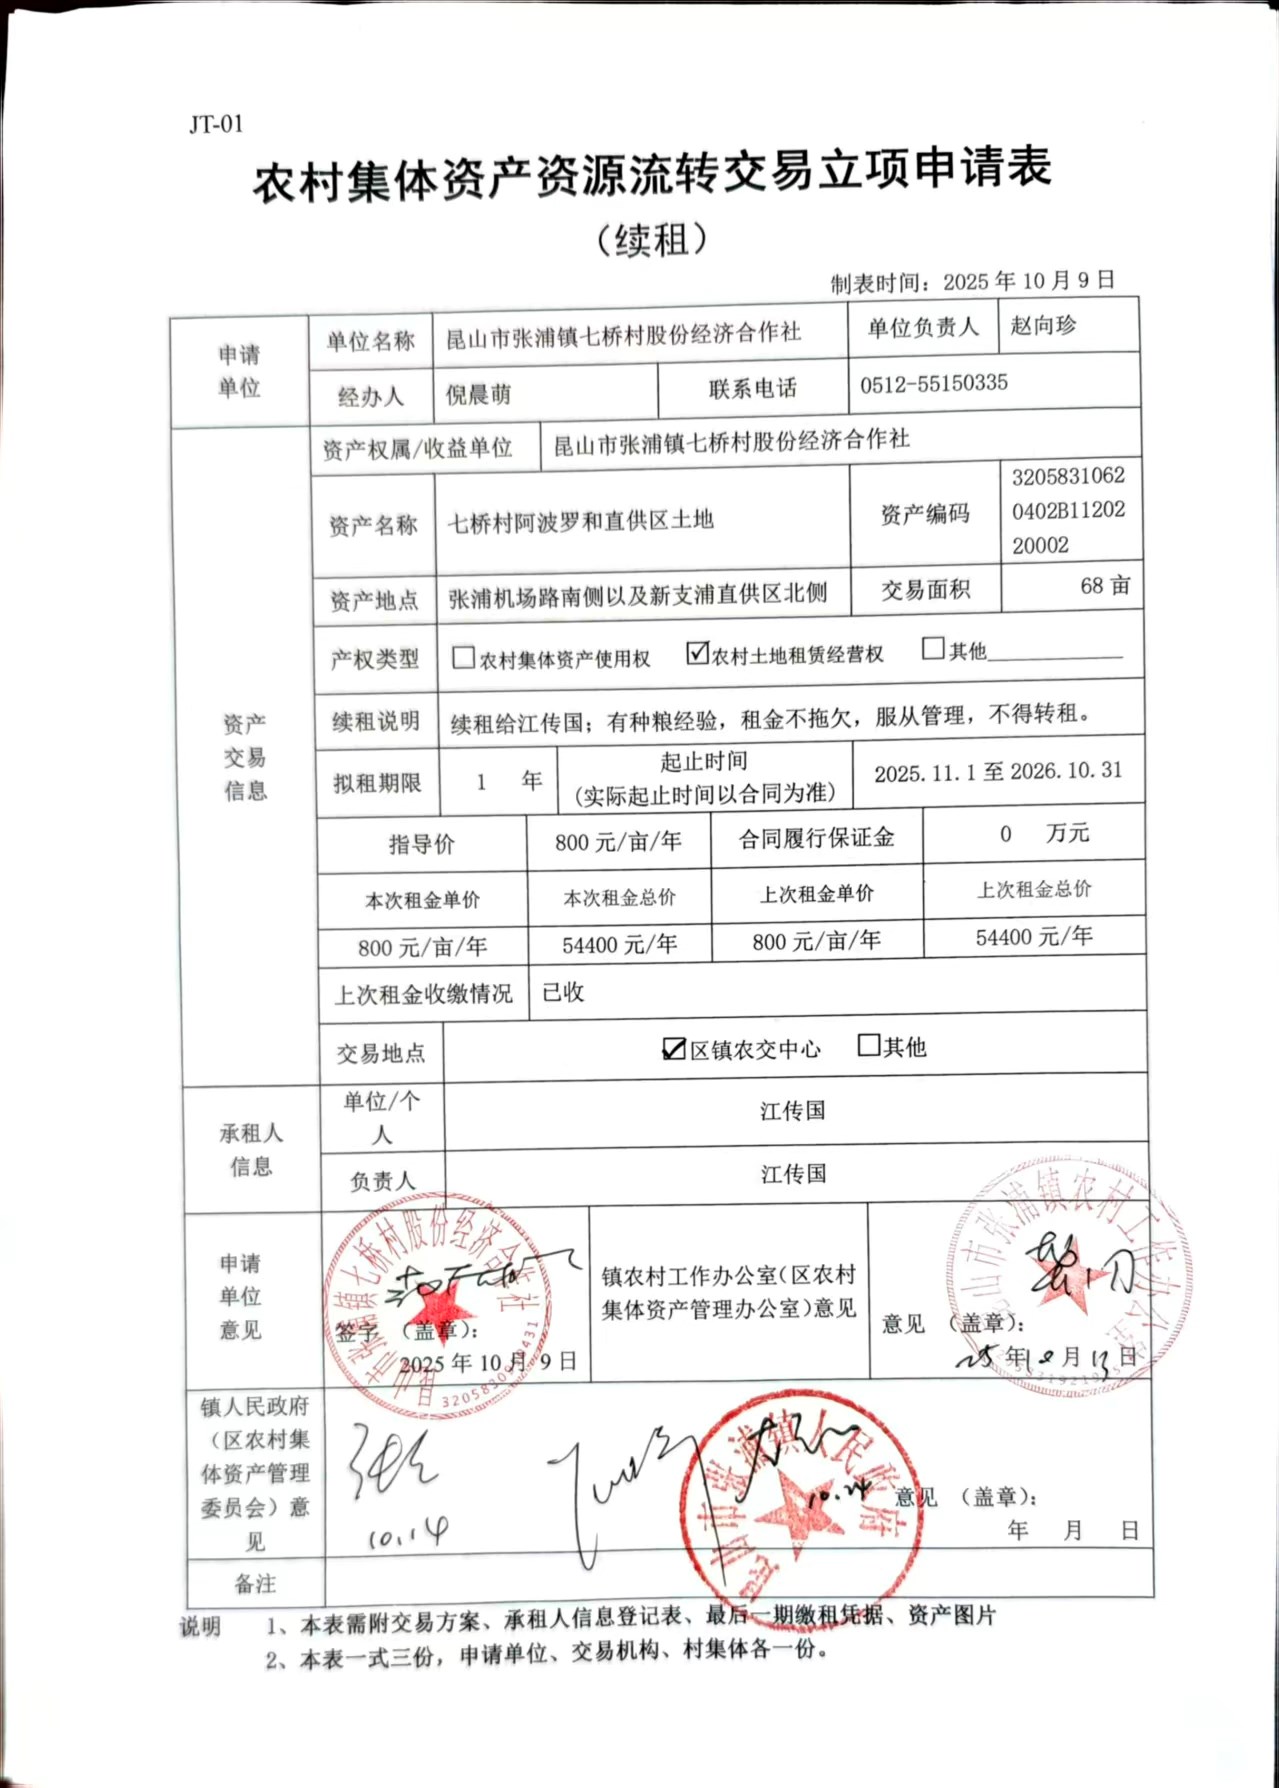 JT-01
农村集体资产资源流转交易立项申请表
（续租）
制表时间：2025 年 10 月 9 日
申请单位 单位名称 昆山市张浦镇七桥村股份经济合作社 单位负责人 赵向珍
经办人 倪晨萌 联系电话 0512-55150335
资产交易信息
资产权属/收益单位 昆山市张浦镇七桥村股份经济合作社
资产名称 七桥村阿波罗和直供区土地 资产编码 3205831062
0402B11202
20002
资产地点 张浦机场路南侧以及新支浦直供区北侧 交易面积 68 亩
产权类型 □农村集体资产使用权 ☑农村土地租赁经营权 □其他
续租说明 续租给江传国；有种粮经验，租金不拖欠，服从管理，不得转租。
拟租期限 1 年 起止时间
（实际起止时间以合同为准） 2025.11.1 至 2026.10.31
指导价 800 元/亩/年 合同履行保证金 0 万元
本次租金单价 本次租金总价 上次租金单价 上次租金总价
800 元/亩/年 54400 元/年 800 元/亩/年 54400 元/年
上次租金收缴情况 已收
交易地点 ☑区镇农交中心 □其他
承租人信息
单位/个人 江传国
负责人 江传国
申请单位意见
签字 （盖章）：
2025 年 10 月 9 日
镇农村工作办公室（区农村
集体资产管理办公室）意见
意见 （盖章）：
25 年 10 月 13 日
镇人民政府
（区农村集
体资产管理
委员会）意
见
10.14
10.24
意见 （盖章）：
年 月 日
昆山市张浦镇七桥村股份经济合作社
昆山市张浦镇农村工作办公室
昆山市张浦镇人民政府
备注
说明 1、本表需附交易方案、承租人信息登记表、最后一期缴租凭据、资产图片
2、本表一式三份，申请单位、交易机构、村集体各一份。